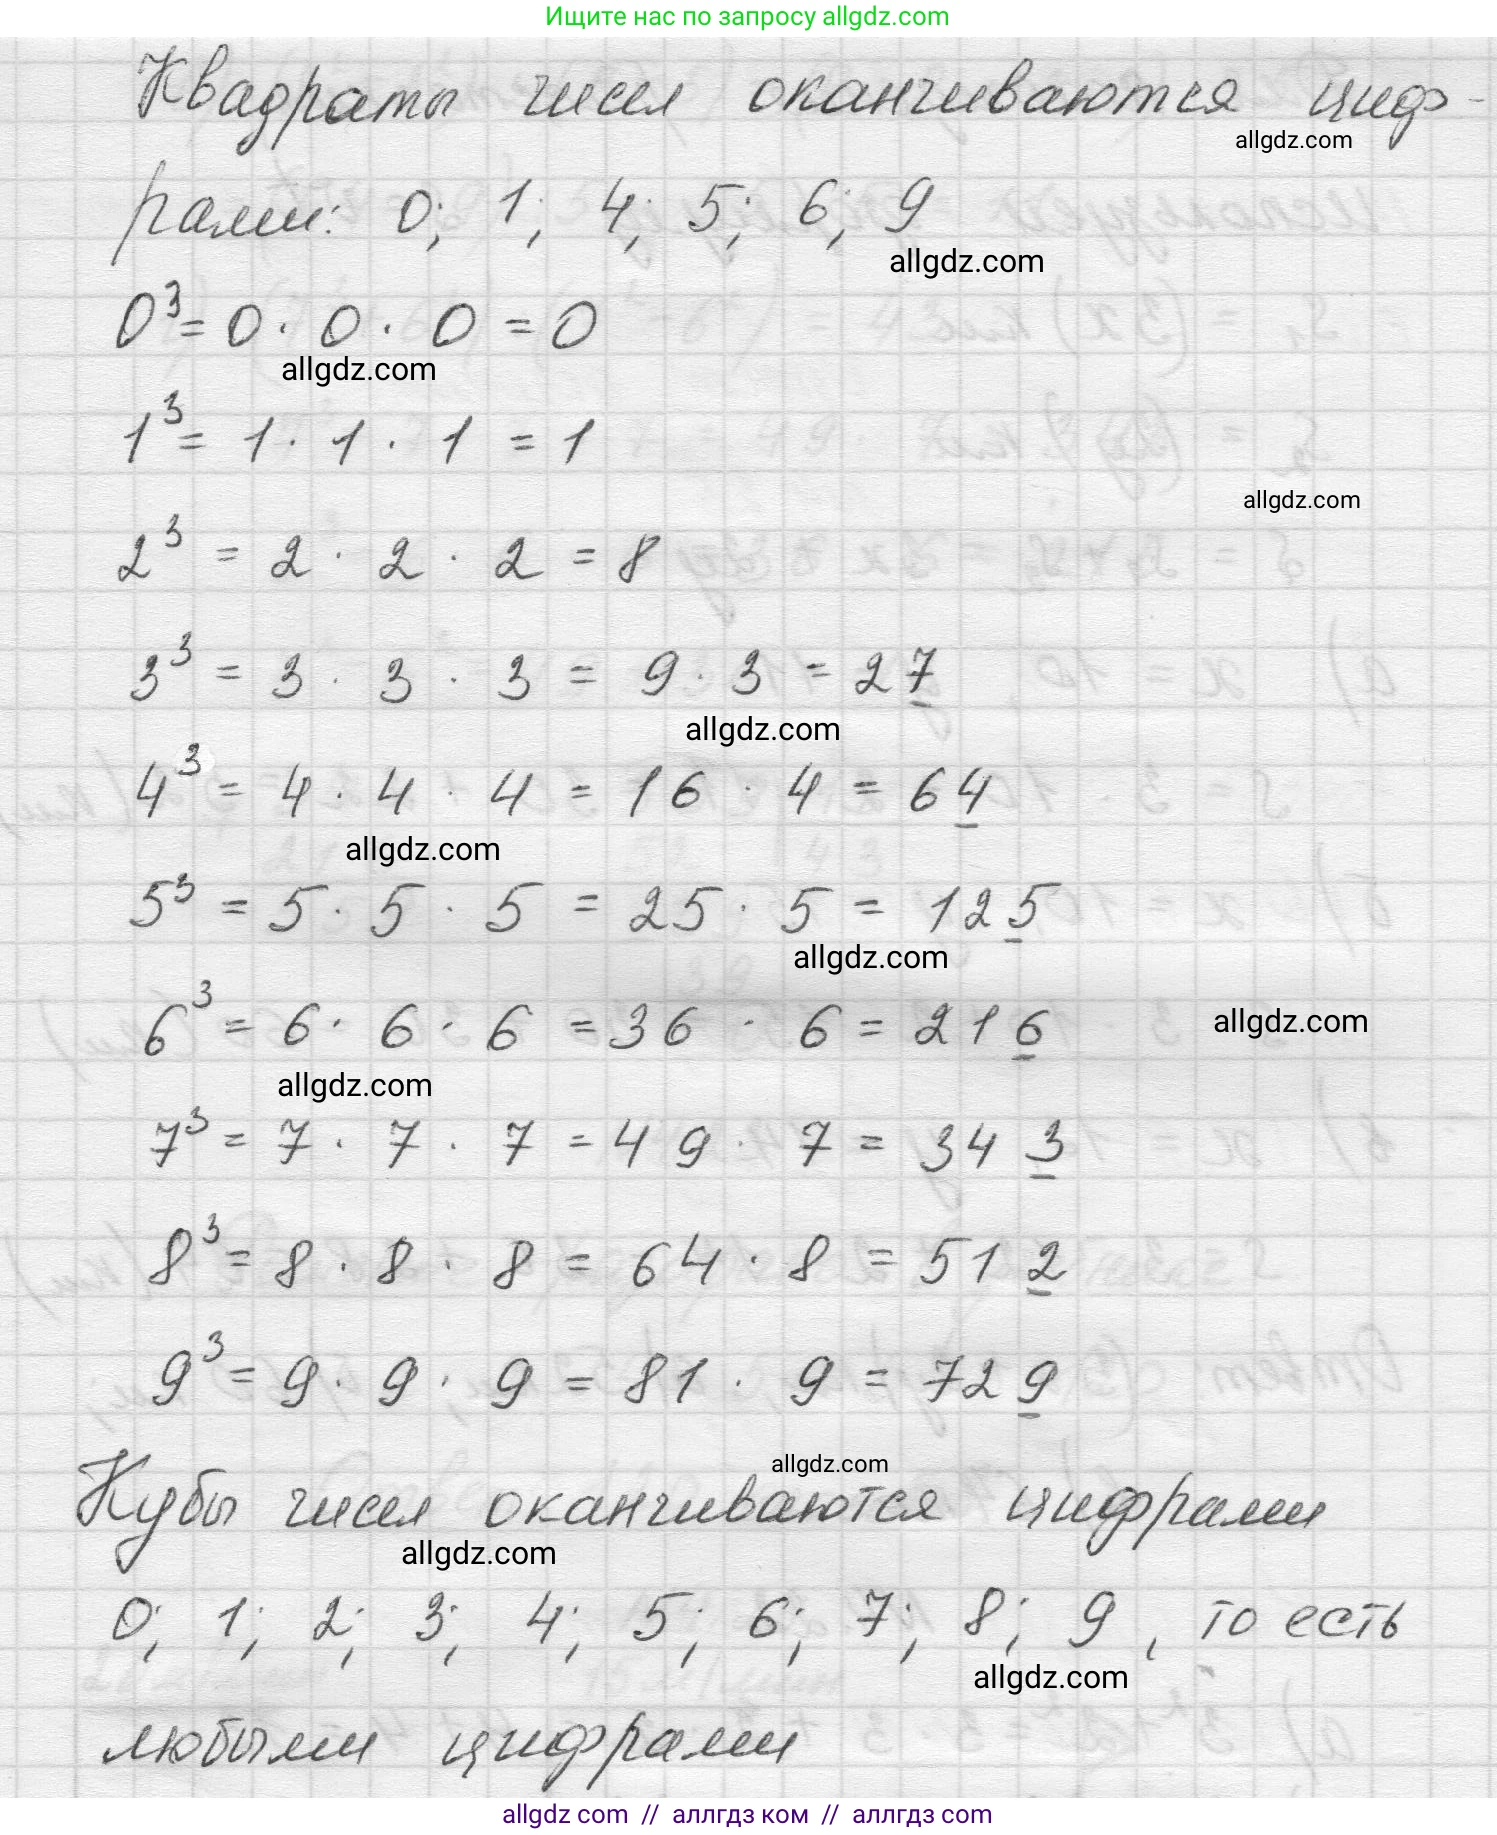 Ищите нас по запросу allgdz.com
Квадраты чисел оканчиваются циф-
allgdz.com
рами: 0; 1; 4; 5; 6; 9
allgdz.com
0³ = 0 · 0 · 0 = 0
allgdz.com
1³ = 1 · 1 · 1 = 1
allgdz.com
2³ = 2 · 2 · 2 = 8
3³ = 3 · 3 · 3 = 9 · 3 = 27
allgdz.com
4³ = 4 · 4 · 4 = 16 · 4 = 64
allgdz.com
5³ = 5 · 5 · 5 = 25 · 5 = 125
allgdz.com
6³ = 6 · 6 · 6 = 36 · 6 = 216
allgdz.com
allgdz.com
7³ = 7 · 7 · 7 = 49 · 7 = 343
8³ = 8 · 8 · 8 = 64 · 8 = 512
9³ = 9 · 9 · 9 = 81 · 9 = 729
allgdz.com
Кубы чисел оканчиваются цифрами
allgdz.com
0; 1; 2; 3; 4; 5; 6; 7; 8; 9, то есть
allgdz.com
любыми цифрами
allgdz.com // аллгдз ком // allgdz com